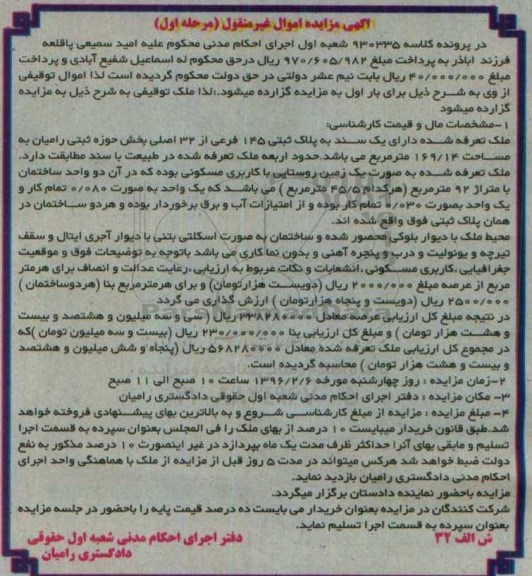 آگهی مزایده اموال غیرمنقول (مرحله اول)
در پرونده کلاسه 930335 شعبه اول اجرای احکام مدنی محکوم علیه امید سمیعی پاقلعه
فرزند اباذر به پرداخت مبلغ 970/605/982 ریال درحق محکوم له اسماعیل شفیع آبادی و پرداخت
مبلغ 40/000/000 ریال بابت نیم عشر دولتی در حق دولت محکوم گردیده است لذا اموال توقیفی
از وی به شرح ذیل برای بار اول به مزایده گزارده میشود.:لذا ملک توقیفی به شرح ذیل به مزایده
گزارده میشود
1-مشخصات مال و قیمت کارشناسی:
ملک تعرفه شده دارای یک سند به پلاک ثبتی 145 فرعی از 32 اصلی بخش حوزه ثبتی رامیان به
مساحت 169/14 مترمربع می باشد.حدود اربعه ملک تعرفه شده در طبیعت با سند مطابقت دارد.
ملک تعرفه شده به صورت یک زمین روستایی با کاربری مسکونی بوده که در آن دو واحد ساختمان
با متراژ 92 مترمربع (هرکدام 45/5 مترمربع ) می باشد که یک واحد به صورت 0/080 تمام کار و
یک واحد بصورت 0/030 تمام کار بوده و از امتیازات آب و برق برخوردار بوده و هردو ساختمان در
همان پلاک ثبتی فوق واقع شده اند.
محیط ملک با دیوار بلوکی محصور شده و ساختمان به صورت اسکلتی بتنی با دیوار آجری ایتال و سقف
تیرچه و یونولیت و درب و پنجره آهنی و بدون نما کاری می باشد باتوجه به توضیحات فوق و موقعیت
جغرافیایی ،کاربری مسکونی ،انشعابات و نکات مربوط به ارزیابی، رعایت عدالت و انصاف برای هرمتر
مربع از عرصه مبلغ 2/000/000 ریال (دویست هزارتومان) و برای هرمترمربع بنا (هردوساختمان )
2500/000 ریال (دویست و پنجاه هزارتومان ) ارزش گذاری می گردد
در نتیجه مبلغ کل ارزیابی عرصه معادل 338280000 ریال (سی و سه میلیون و هشتصد و بیست
و هشت هزار تومان ) و مبلغ کل ارزیابی بنا 230/000/000 ریال (بیست و سه میلیون تومان )که
در مجموع کل ارزیابی ملک تعرفه شده معادل 568280000 ریال (پنجاه و شش میلیون و هشتصد
و بیست و هشت هزار تومان ) محاسبه گردیده است.
2-زمان مزایده : روز چهارشنبه مورخه 1396/2/6 ساعت 10 صبح الی 11 صبح
3- مکان مزایده : دفتر اجرای احکام مدنی شعبه اول حقوقی دادگستری رامیان
4- مبلغ مزایده : مزایده از مبلغ کارشناسی شروع و به بالاترین بهای پیشنهادی فروخته خواهد
شد.طبق قانون خریدار میبایست 10 درصد از بهای ملک را فی المجلس بعنوان سپرده به قسمت اجرا
تسلیم و مابقی بهای آنرا حداکثر ظرف مدت یک ماه بپردازد در غیر اینصورت 10 درصد مذکور به نفع
دولت ضبط خواهد شد هرکس میتواند در مدت 5 روز قبل از مزایده از ملک با هماهنگی واحد اجرای
احکام مدنی دادگستری رامیان بازدید نماید.
مزایده باحضور نماینده دادستان برگزار میگردد.
شرکت کنندگان در مزایده بعنوان خریدار می بایست ده درصد قیمت پایه را باحضور در جلسه مزایده
بعنوان سپرده به قسمت اجرا تسلیم نماید.
دفتر اجرای احکام مدنی شعبه اول حقوقی
دادگستری رامیان
ش الف 32